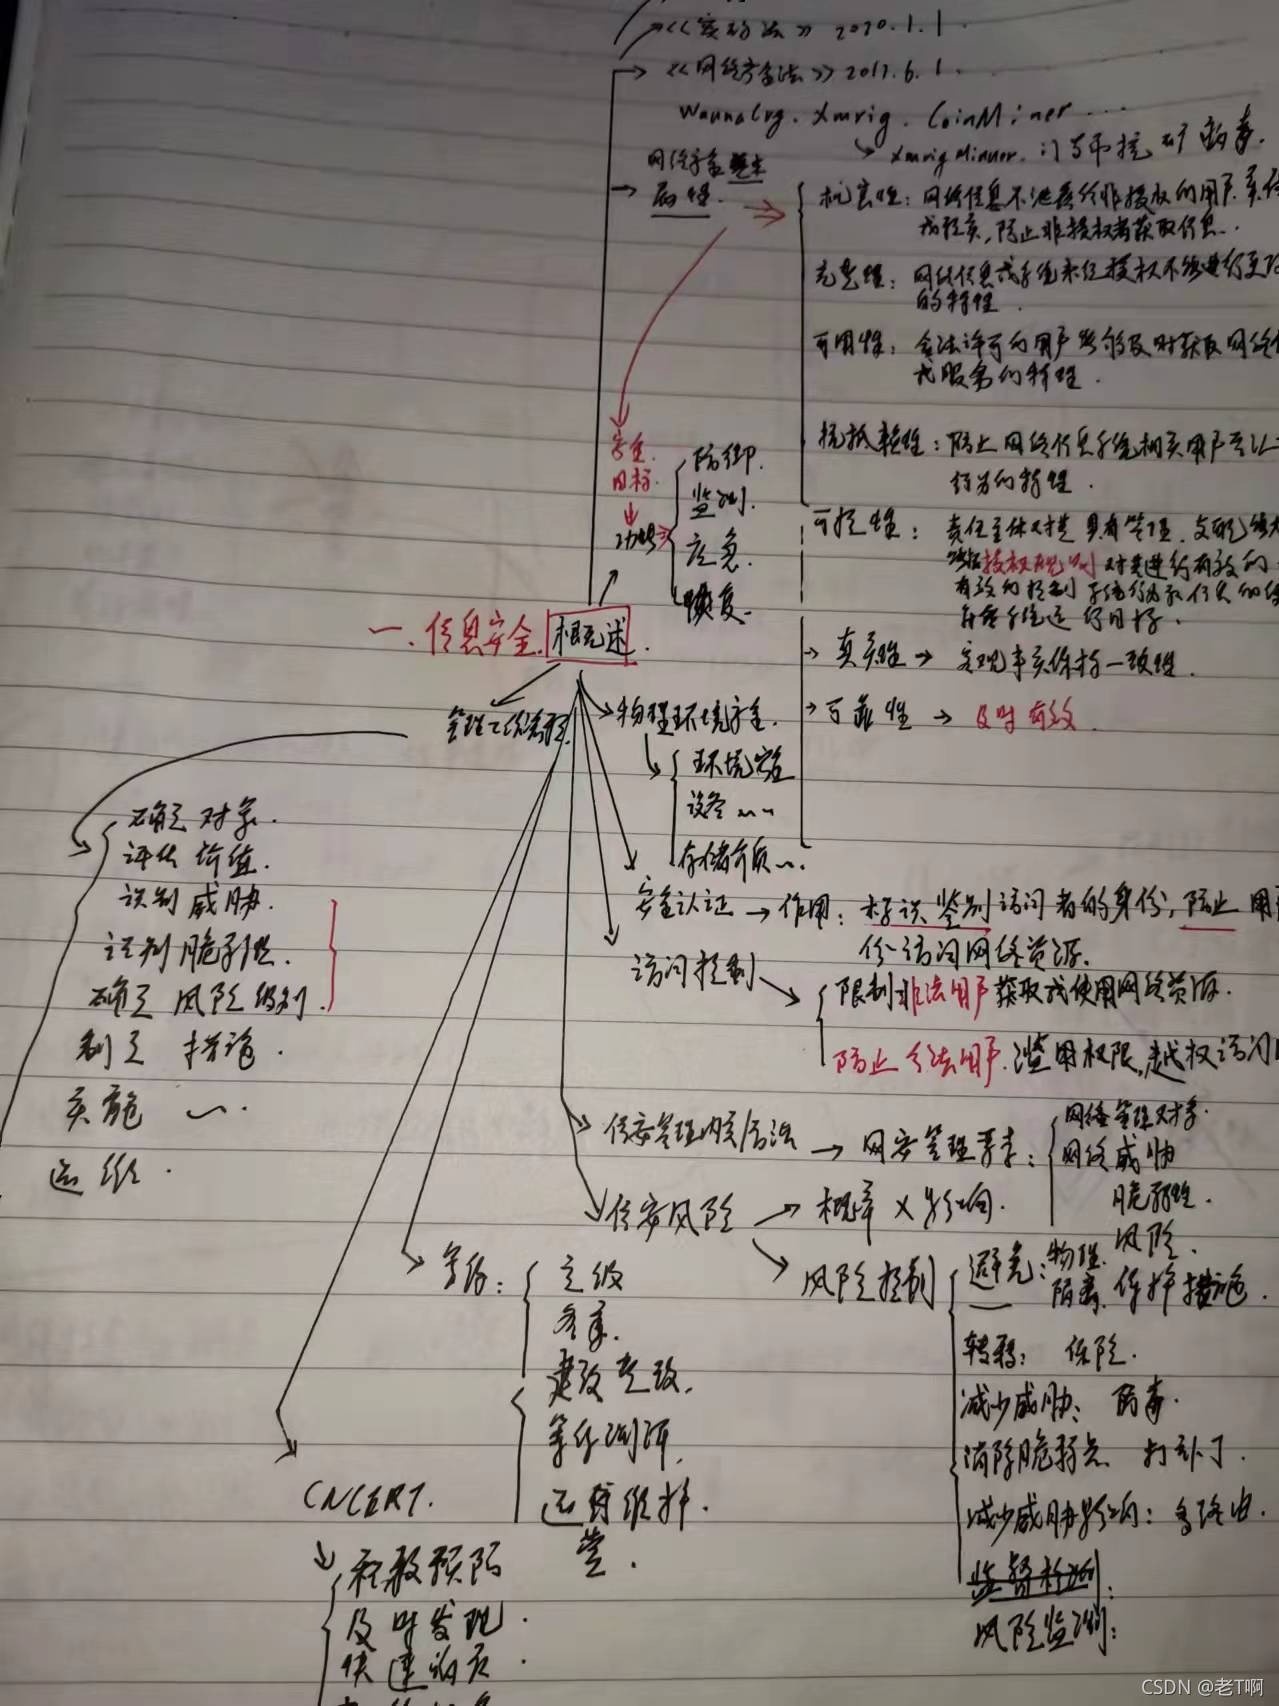 《《密码法》》 2020.1.1.
《《网络安全法》》2017.6.1.
Xmrig. CoinMiner ....
病毒.
网络安全基本
属性.
机密性：网络信息不泄露给非授权的用户.
防止非授权者获取信息..
完整性：网络信息或系统未经授权不能进行更改
的特性.
可用性：合法许可的用户能够及时获取网络
或服务的特性.
抗抵赖性：防止网络信息系统相关用户否认
行为的特性.
可控性：责任主体对其具有管理、支配
授权规则对其进行有效的
有效的控制
安全
目标.
功能
防御.
监测.
应急.
恢复.
一.信息安全.概述.
真实性 → 客观事实保持一致性.
可靠性 → 及时有效.
管理工作流程
物理环境安全.
环境安全
设备 ~~
存储介质~.
确定对象.
评估价值.
识别威胁.
识别脆弱性.
确定风险级别.
制定措施.
实施 ~.
运维.
安全认证 → 作用：标识鉴别访问者的身份，防止用
份访问网络资源.
访问控制
限制非法用户获取或使用网络资源.
防止合法用户滥用权限，越权访问
信安管理内容方法 → 网安管理要素：
网络管理对象.
网络威胁
脆弱性.
风险.
信安风险 → 概率 × 影响.
风险控制
避免：物理
隔离. 保护措施.
转移：保险.
减少威胁：防毒.
消除脆弱点 打补丁.
减少威胁影响：多路由.
监督检测：
风险监测：
等保：
定级
备案.
建设整改.
等保测评.
运营维护.
营.
CNCERT.
积极预防
及时发现.
快速响应.
CSDN @老T啊